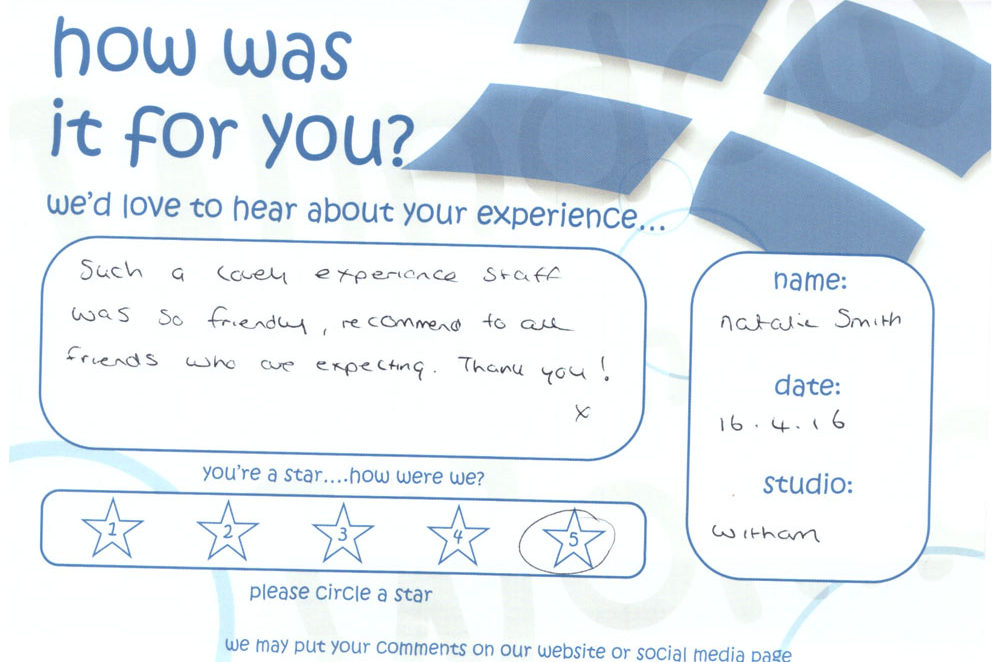 how was
it for you?
we'd love to hear about your experience...
Such a lovely experience staff
was so friendly, recommend to all
friends who are expecting. Thank you!
x
name:
natalie Smith
date:
16.4.16
studio:
witham
you're a star....how were we?
1 2 3 4 5
please circle a star
we may put your comments on our website or social media page